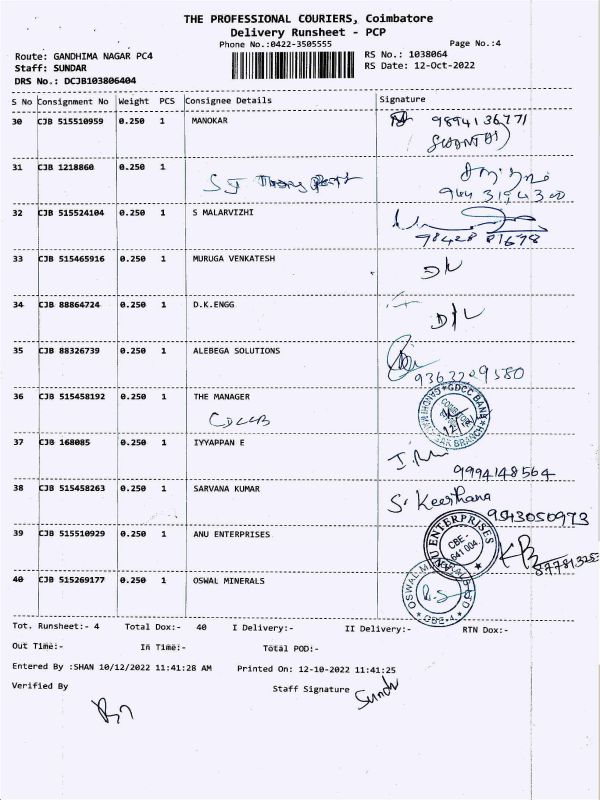 THE PROFESSIONAL COURIERS, Coimbatore
Delivery Runsheet - PCP
Phone No.:0422-3505555
Page No.:4
Route: GANDHIMA NAGAR PC4
RS No.: 1038064
Staff: SUNDAR
RS Date: 12-Oct-2022
DRS No.: DCJB103806404
S No Consignment No Weight PCS Consignee Details Signature
30 CJB 515510959 0.250 1 MANOKAR 9894136771
31 CJB 1218860 0.250 1
9443194300
32 CJB 515524104 0.250 1 S MALARVIZHI
98428 81698
33 CJB 515465916 0.250 1 MURUGA VENKATESH
D/L
34 CJB 88864724 0.250 1 D.K.ENGG
D/L
35 CJB 88326739 0.250 1 ALEBEGA SOLUTIONS
9363209580
36 CJB 515458192 0.250 1 THE MANAGER
CDCCB
GDCC BANK
37 CJB 168085 0.250 1 IYYAPPAN E
9994148564
38 CJB 515458263 0.250 1 SARVANA KUMAR
S. Keerthana
9543050973
39 CJB 515510929 0.250 1 ANU ENTERPRISES
ANU ENTERPRISES
CBE-
641 004.
40 CJB 515269177 0.250 1 OSWAL MINERALS
CBE-4
Tot. Runsheet:- 4 Total Dox:- 40 I Delivery:- II Delivery:- RTN Dox:-
Out Time:- In Time:- Total POD:-
Entered By :SHAN 10/12/2022 11:41:28 AM Printed On: 12-10-2022 11:41:25
Verified By Staff Signature